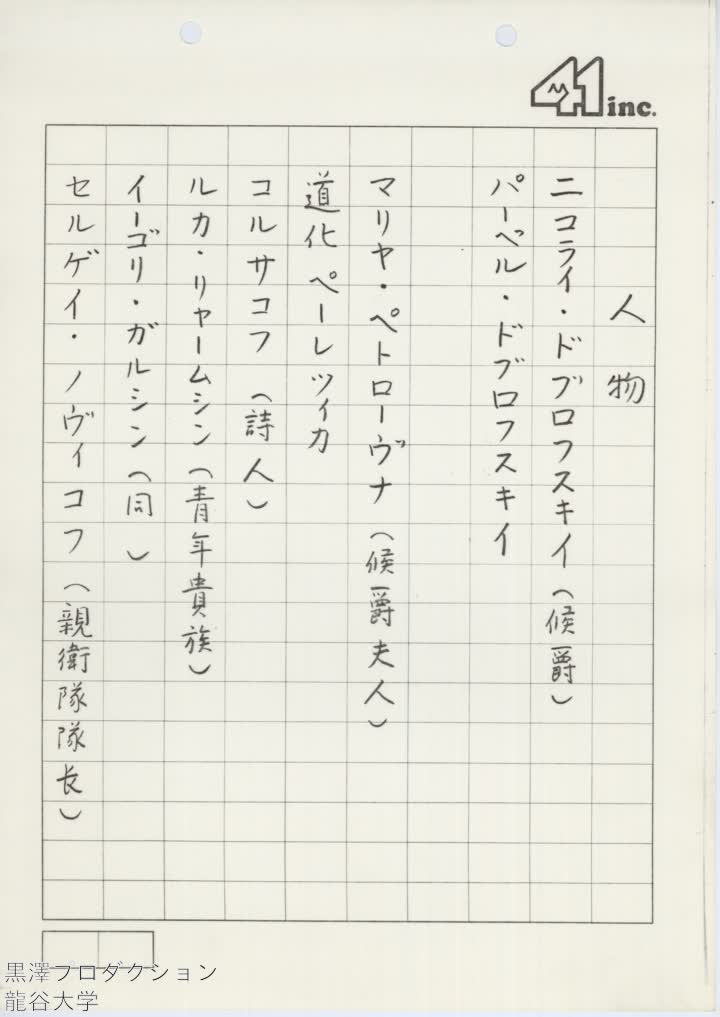 41 inc.
人物
ニコライ・ドブロフスキイ（候爵）
パーベル・ドブロフスキイ
マリヤ・ペトローヴナ（候爵夫人）
道化 ペーレツィカ
コルサコフ （詩人）
ルカ・リャームシン（青年貴族）
イーゴリ・ガルシン（同 ）
セルゲイ・ノヴィコフ（親衛隊隊長）
黒澤プロダクション
龍谷大学